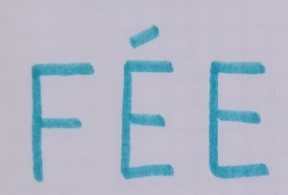 FÉE